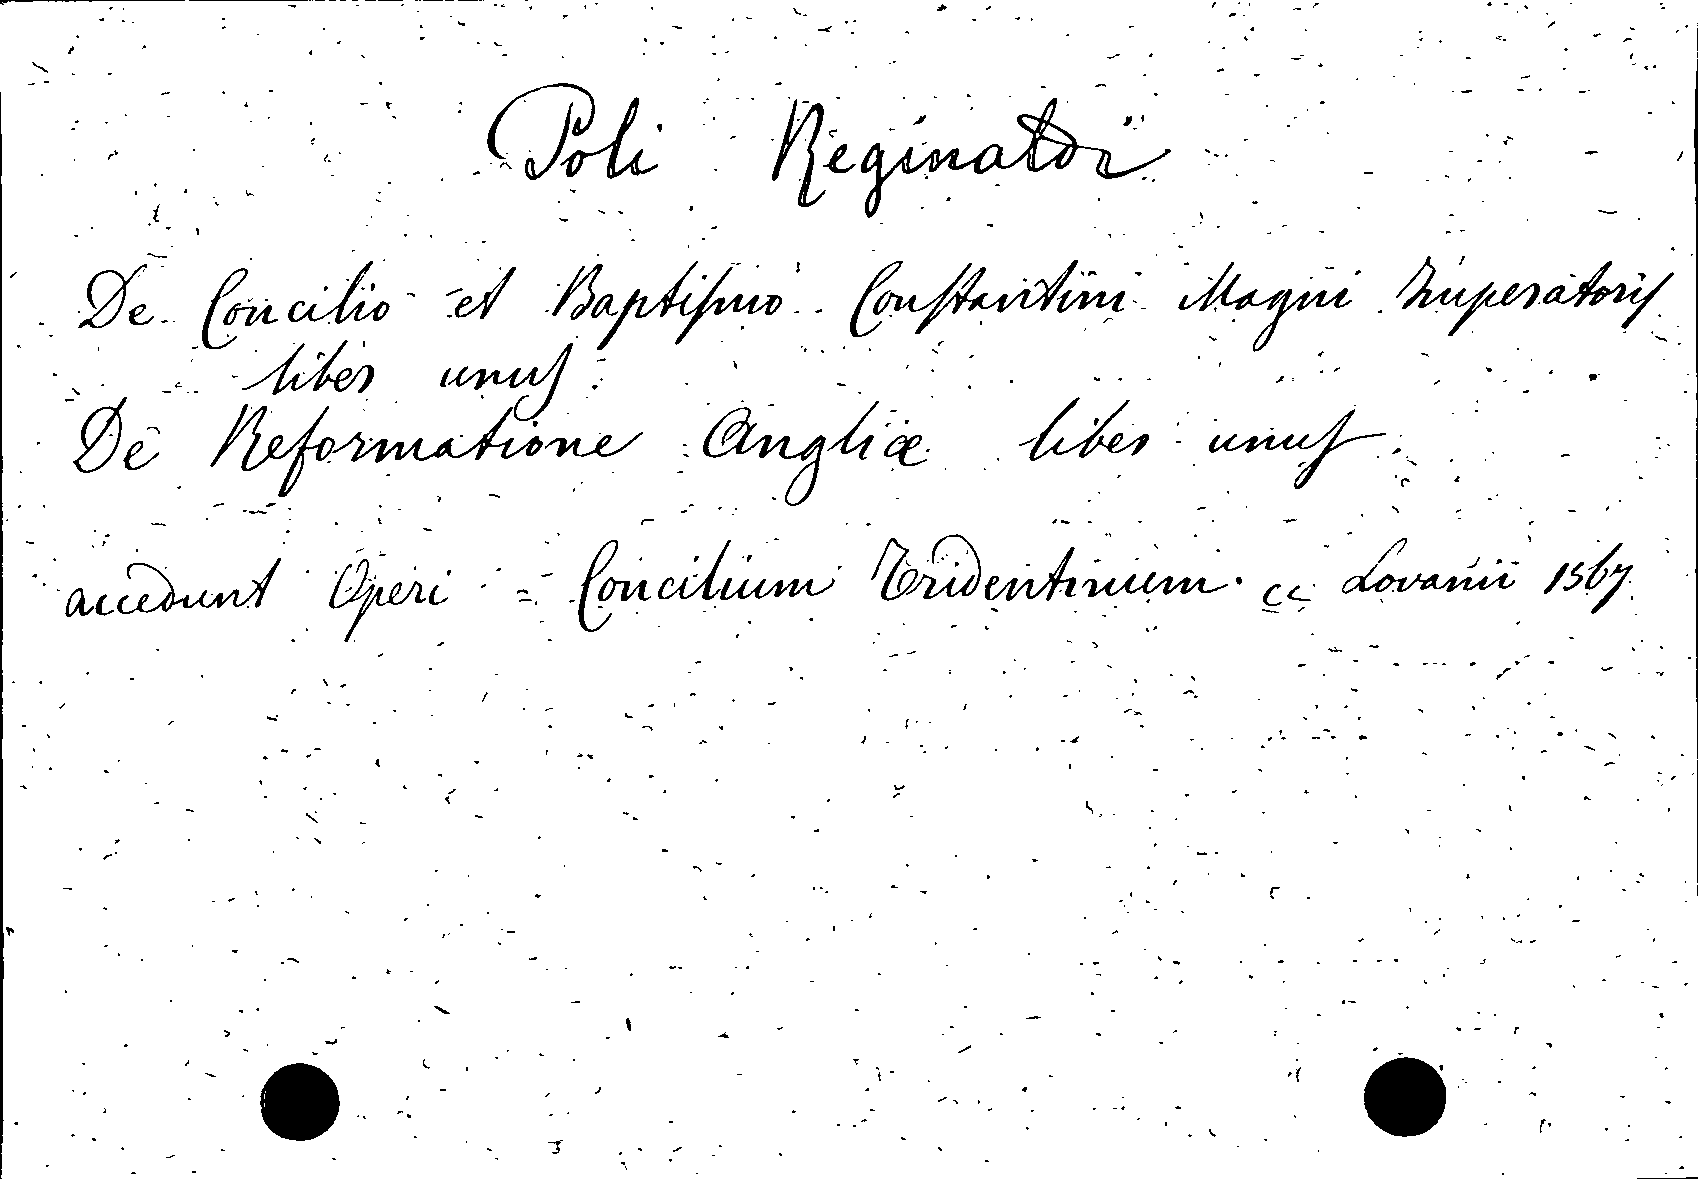 Poli Reginaldi
De Concilio et Baptiſmo Conſtantini Magni Imperatoris
liber unus.
De Reformatione Angliæ liber unus.
accedunt Operi = Concilium Tridentinum. Lovanii 1567